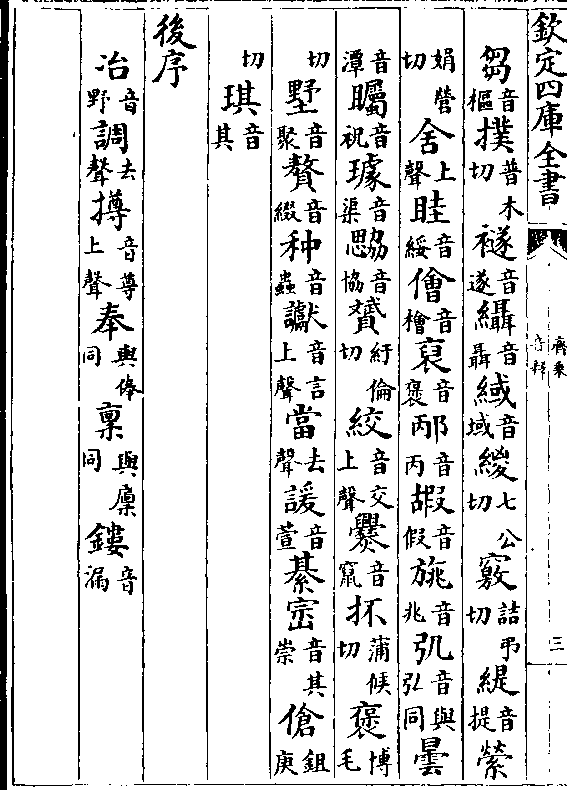 欽定四庫全書
齊乗
音釋
三
芻音樞撲普木切襚音遂繦音聶緎音域緵七公切竅詰弔切緹音提縈
娟營切舍上聲眭音綏儈音檜裒音褒邴音丙嘏音假旐音兆弘音與弘同曇
音潭矚音祝璩音渠勰音協贇紆倫切絞音交上聲爨音竄抔蒲候切褒博毛
切墅音聚贅音綴种音蟲讞音言上聲當去聲諼音萱綦崈音其崇傖鉏庚
切琪音其
後序
冶音野調去聲撙音蓴上聲奉與俸同稟與廩同鏤音漏